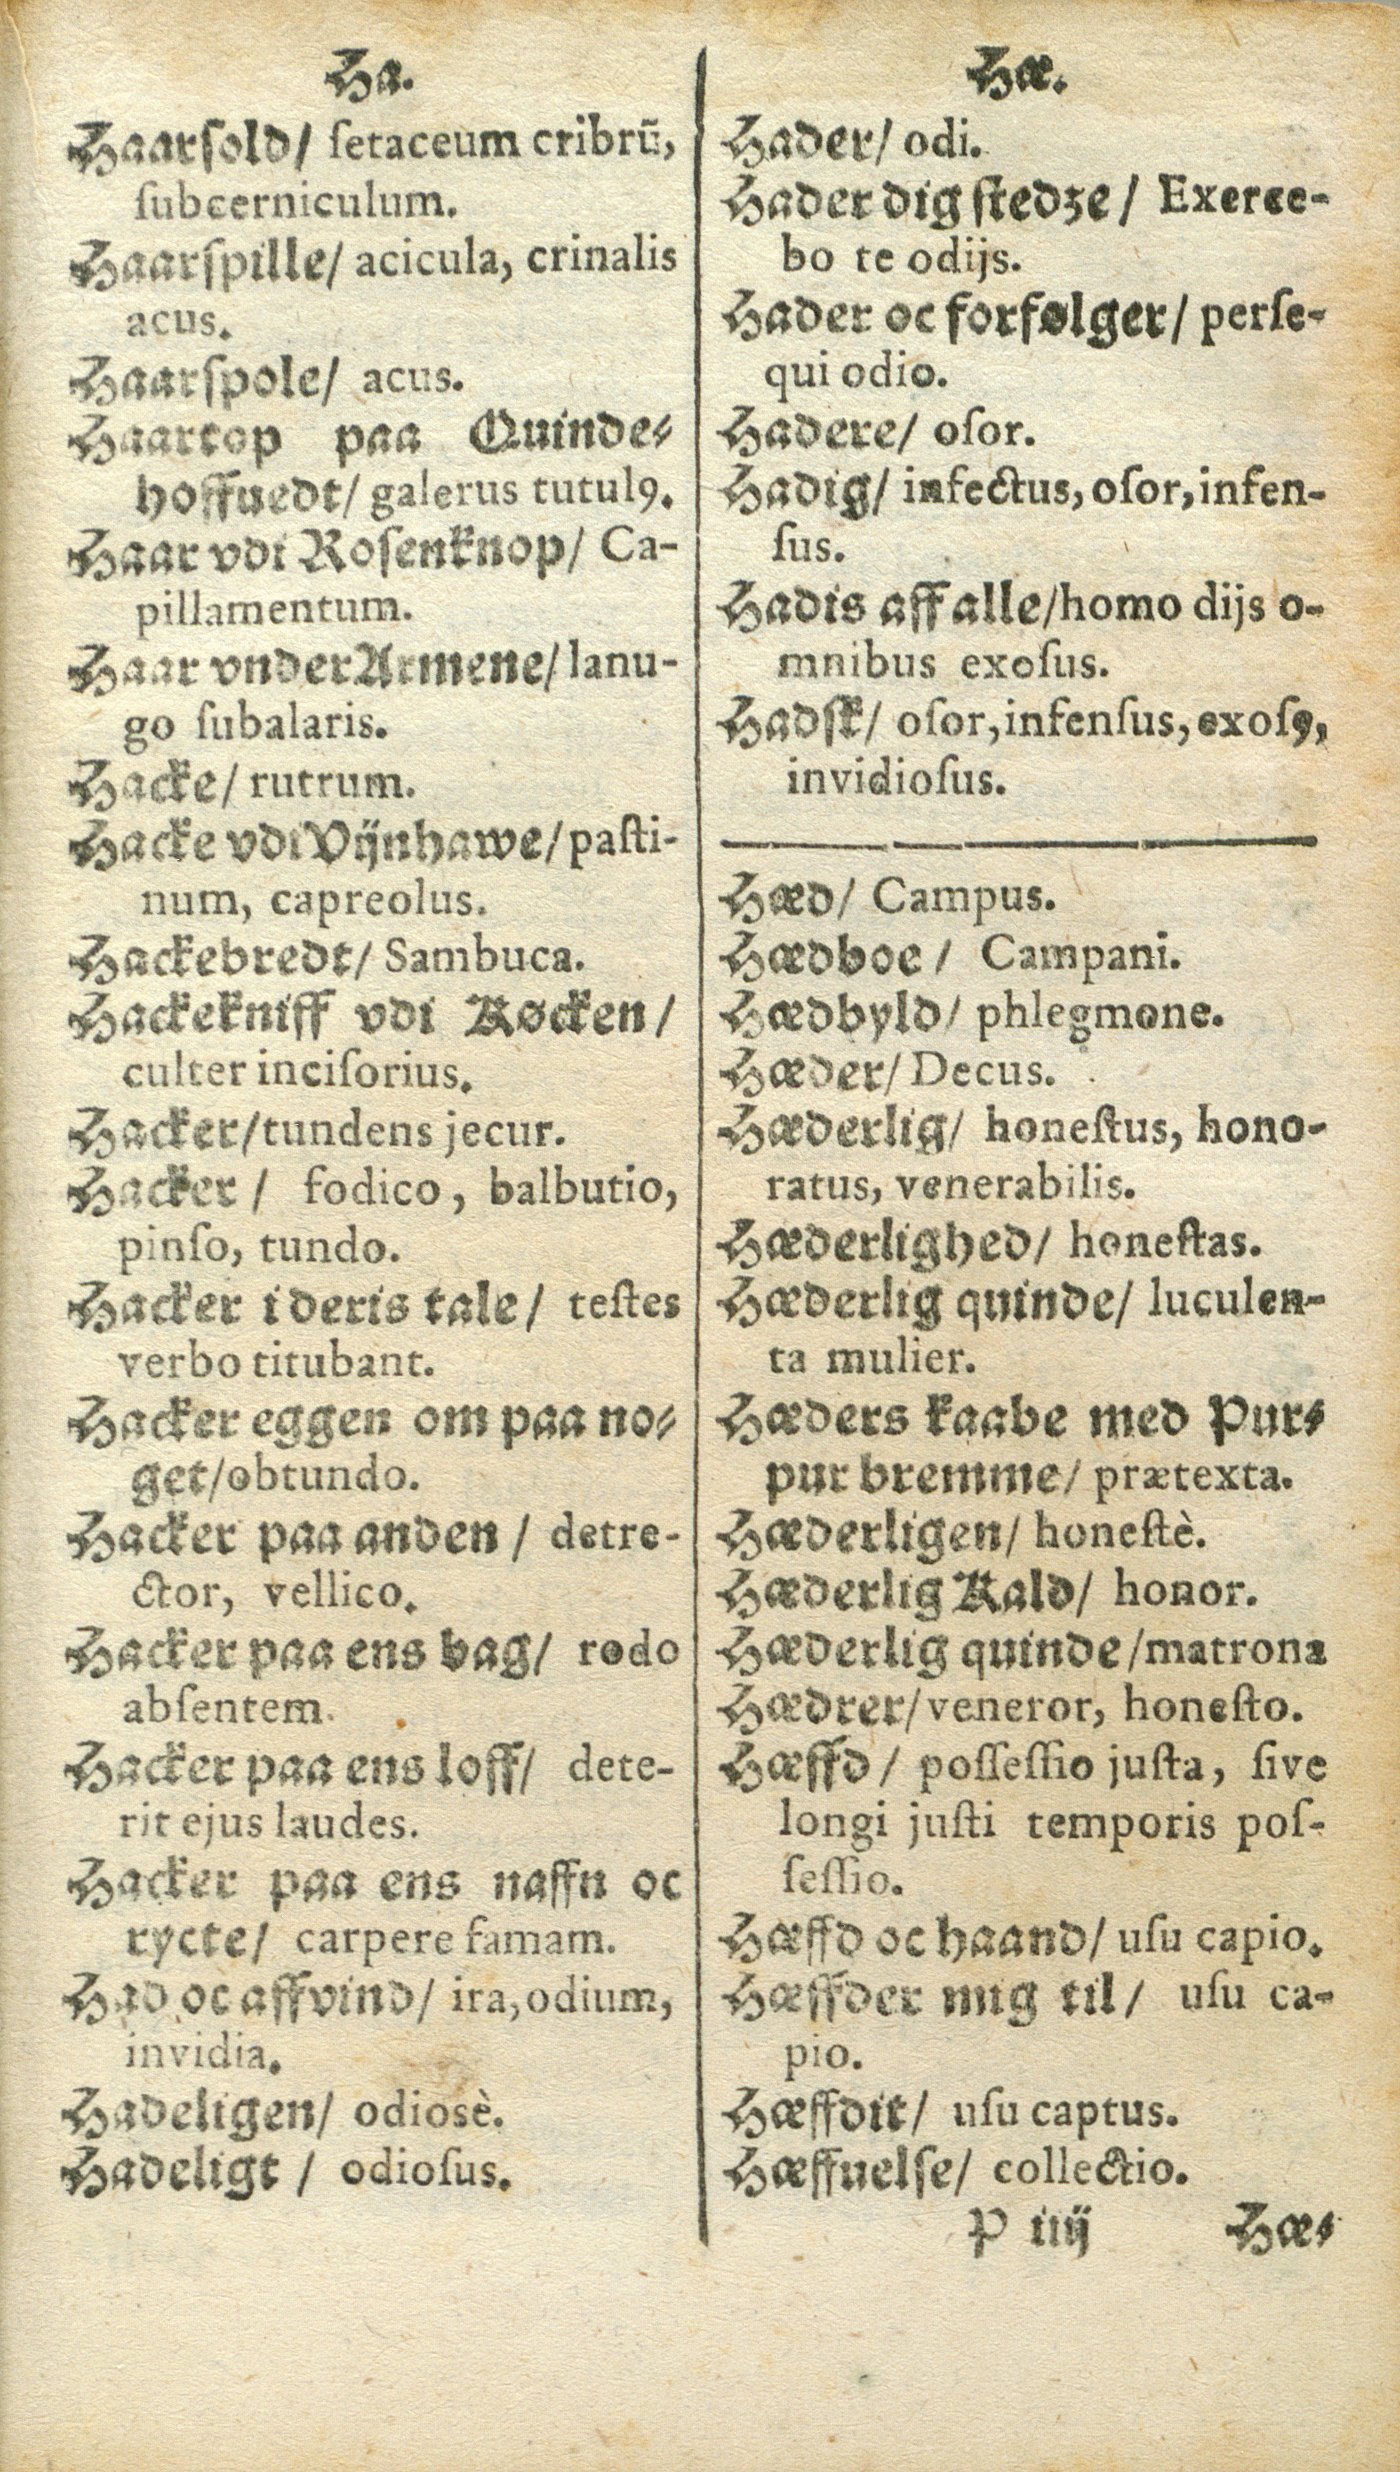 Ha.
Haarſold/ ſetaceum cribrū,
ſubcerniculum.
Haarſpille/ acicula, crinalis
acus.
Haarſpole/ acus.
Haartop paa Quinde-
hoffuedt/ galerus tutulꝰ.
Haar vdi Roſenknop/ Ca-
pillamentum.
Haar vnder Armene/ lanu-
go ſubalaris.
Hacke/ rutrum.
Hacke vdi Vijnhawe/ paſti-
num, capreolus.
Hackebredt/ Sambuca.
Hackekniff vdi Køcken/
culter inciſorius.
Hacker/ tundens jecur.
Hacker/ fodico, balbutio,
pinſo, tundo.
Hacker i deris tale/ teſtes
verbo titubant.
Hacker eggen om paa no-
get/ obtundo.
Hacker paa anden/ detre-
ctor, vellico.
Hacker paa ens bag/ rodo
abſentem.
Hacker paa ens loff/ dete-
rit ejus laudes.
Hacker paa ens naffn oc
rycte/ carpere famam.
Had oc affvind/ ira, odium,
invidia.
Hadeligen/ odiosè.
Hadeligt/ odioſus.
Hæ.
Hader/ odi.
Hader dig ſtedze/ Exerce-
bo te odijs.
Hader oc forfølger/ perſe-
qui odio.
Hadere/ oſor.
Hadig/ infectus, oſor, infen-
ſus.
Hadis aff alle/ homo dijs o-
mnibus exoſus.
Hadſk/ oſor, infenſus, exoſꝰ,
invidioſus.
Hæd/ Campus.
Hædboe/ Campani.
Hædbyld/ phlegmone.
Hæder/ Decus.
Hæderlig/ honeſtus, hono-
ratus, venerabilis.
Hæderlighed/ honeſtas.
Hæderlig quinde/ luculen-
ta mulier.
Hæders kaabe med Pur-
pur bremme/ prætexta.
Hæderligen/ honeſtè.
Hæderlig Kald/ honor.
Hæderlig quinde/ matrona
Hædrer/ veneror, honeſto.
Hæffd/ poſſeſſio juſta, ſive
longi juſti temporis poſ-
ſeſſio.
Hæffd oc haand/ uſu capio.
Hæffder mig til/ uſu ca-
pio.
Hæffdit/ uſu captus.
Hæffuelſe/ collectio.
P iiij Hæ-